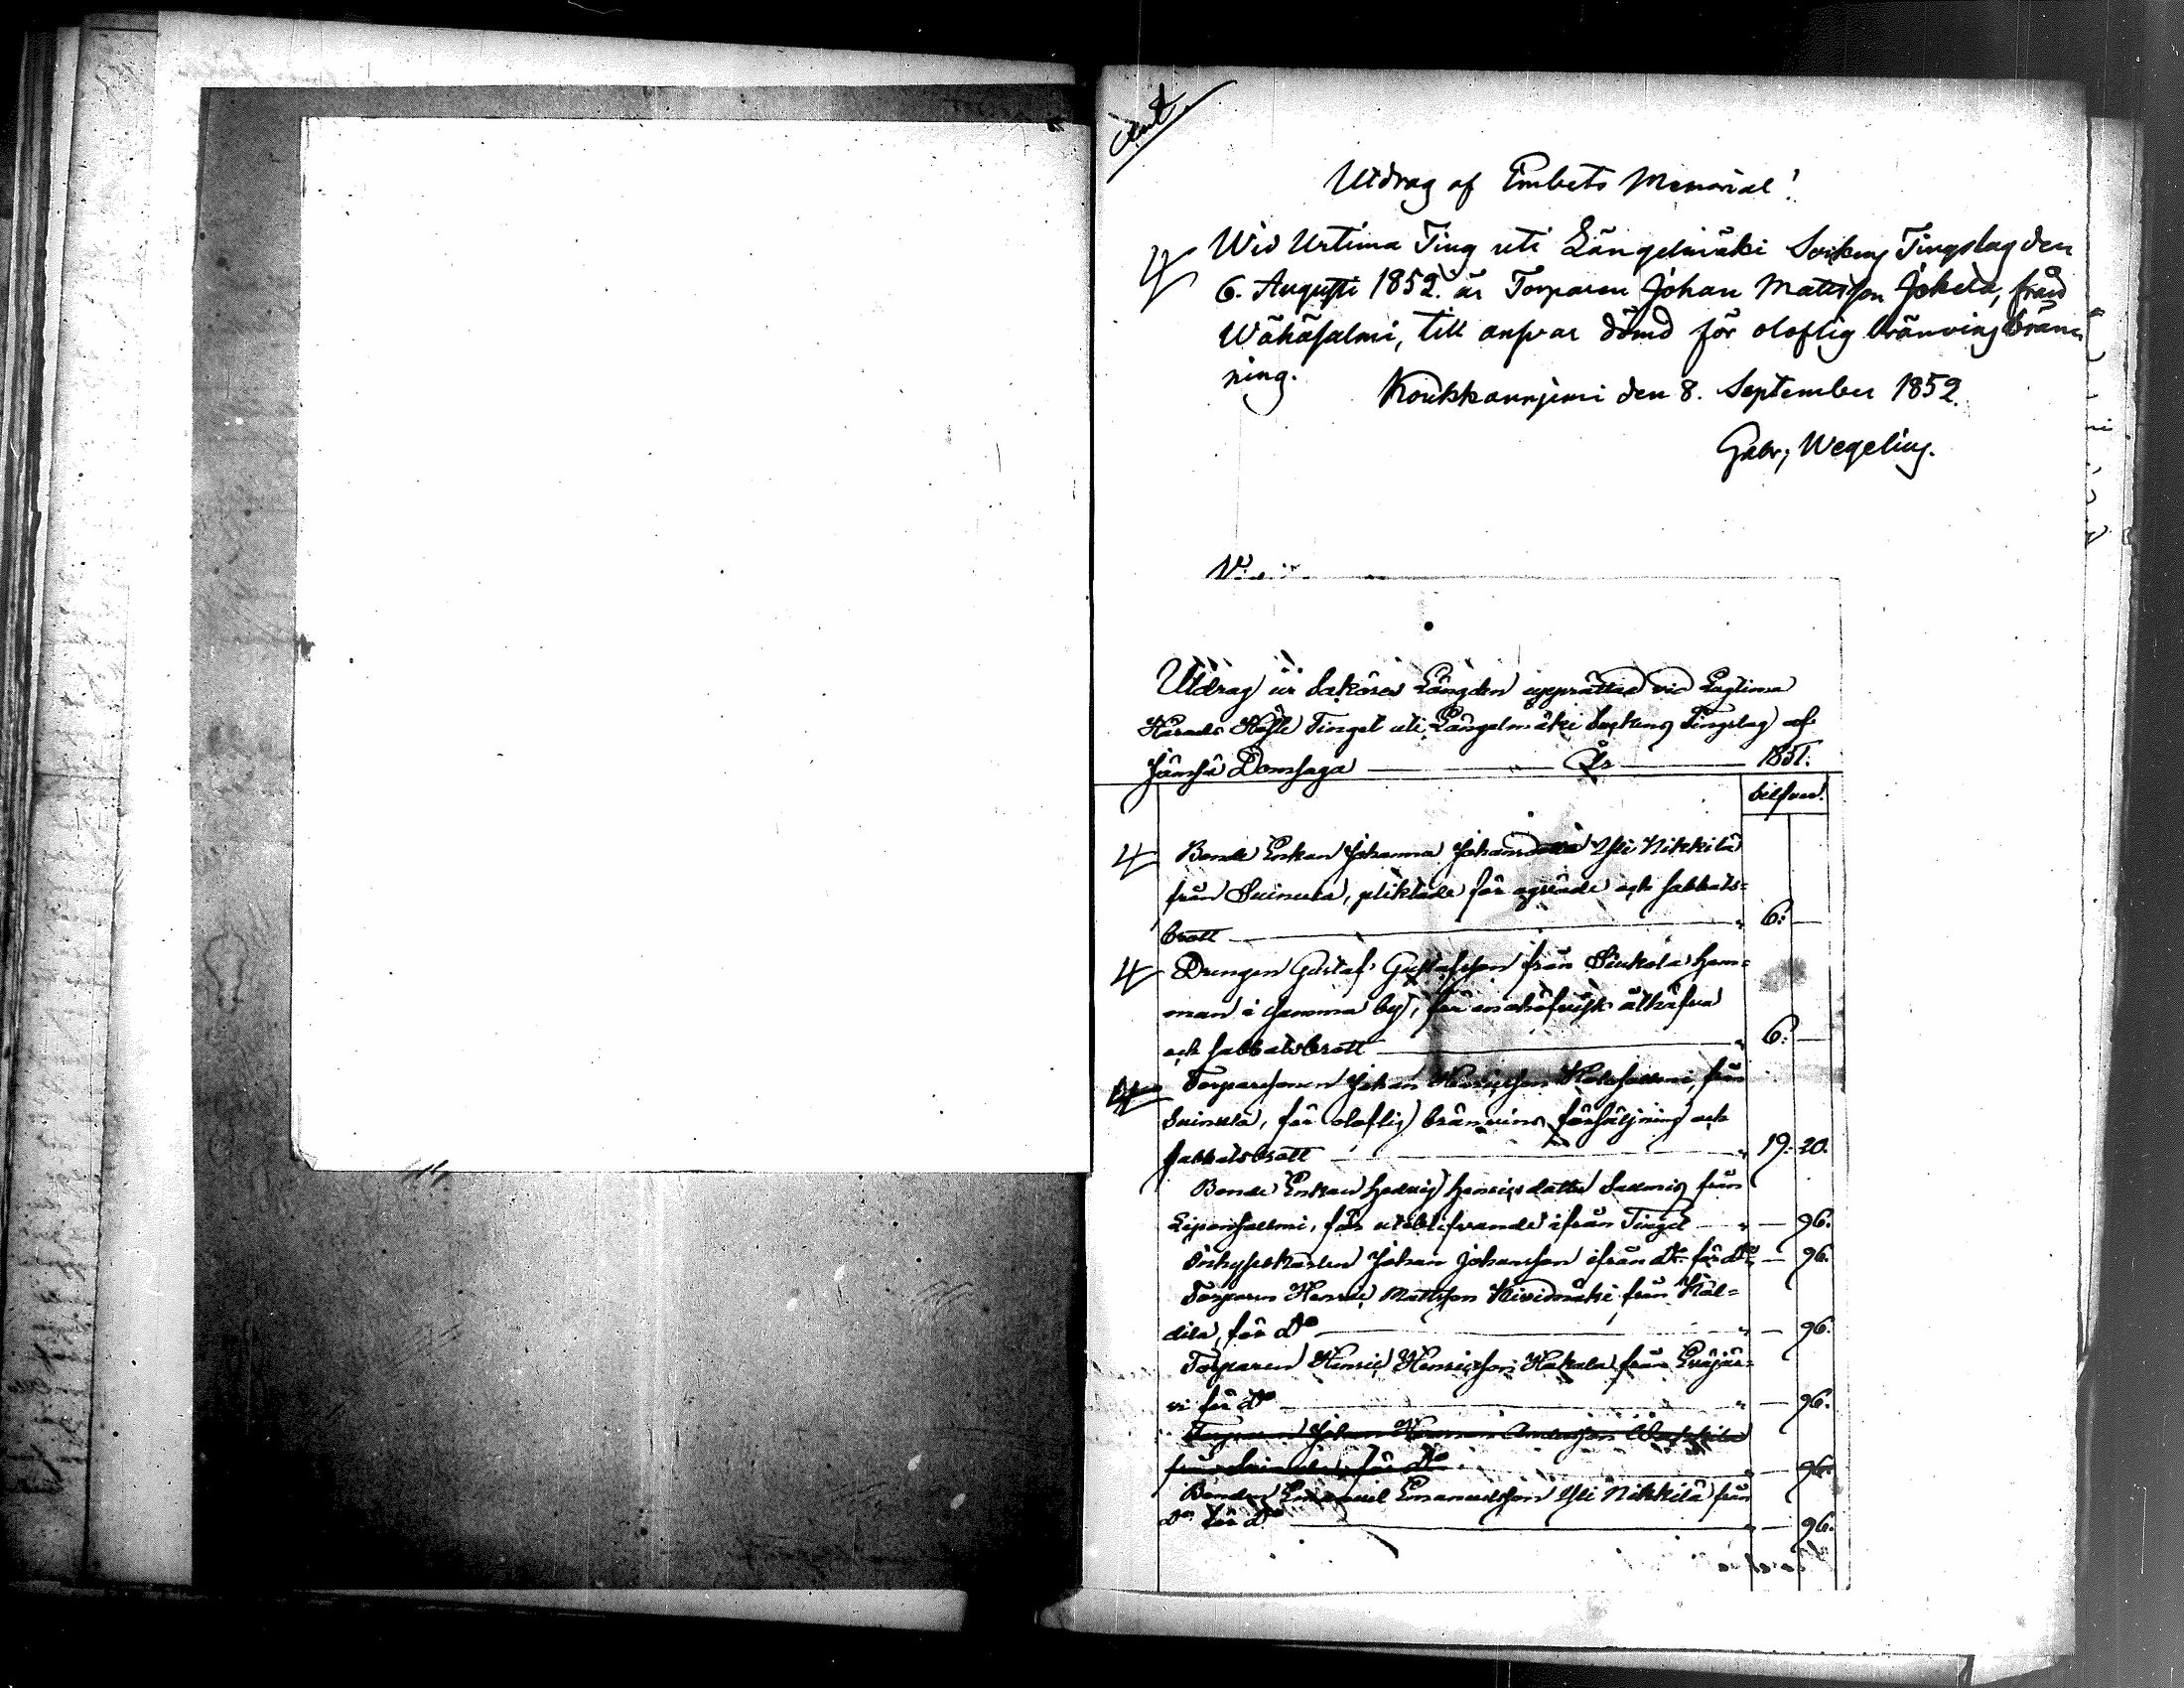 Utdrag af Embets Memorial!
Wid Urtima Ting uti Längelmäki Sockens Tingslag den
6. Augusti 1852. är Torparen Johan Mattsson Jokela, från
Wähäsalmi, till ansvar dömd för oloflig bränvins brän-
ning.
Koukkarniemi den 8. September 1852.
Gabr, Wegelius.
Utdrag ur Saköres Längden upprättad vid Lagtima
Härads Höfle Tinget uti Längelmäki Sockens Tingslag af
Jämsä Domsaga — År — 1851.
Silfver.
4 Bonde Enkan Johanna Johansdotter Yli Nikkilä
från Suinula, pliktade för och sabbats=
brott — 6: —
4 Drengen Gustaf Gustafsson från hem=
man i samma by, för åthäfva
och sabbatsbrott — 6: —
Torparesonen Johan Henricsson från
Suinula, för oloflig bränvins försäljning och
sabbatsbrott — 19: 20.
Bonde Enkan Hedvig Henricsdotter från
för uteblifvande ifrån Tinget — 96.
Johan Johansson ifrån do för do — 96.
Torparen Henric Mattsson Kivimäki från Käl=
dila, för do — 96.
Torparen Henric Henricsson Hakala från Eräjär=
vi för do — 96.
Torparen Johan Andersson
från Suinula, för do — 96.
Bonden Emanuel Emanuelsson Yli Nikkilä från
do för do — 96.